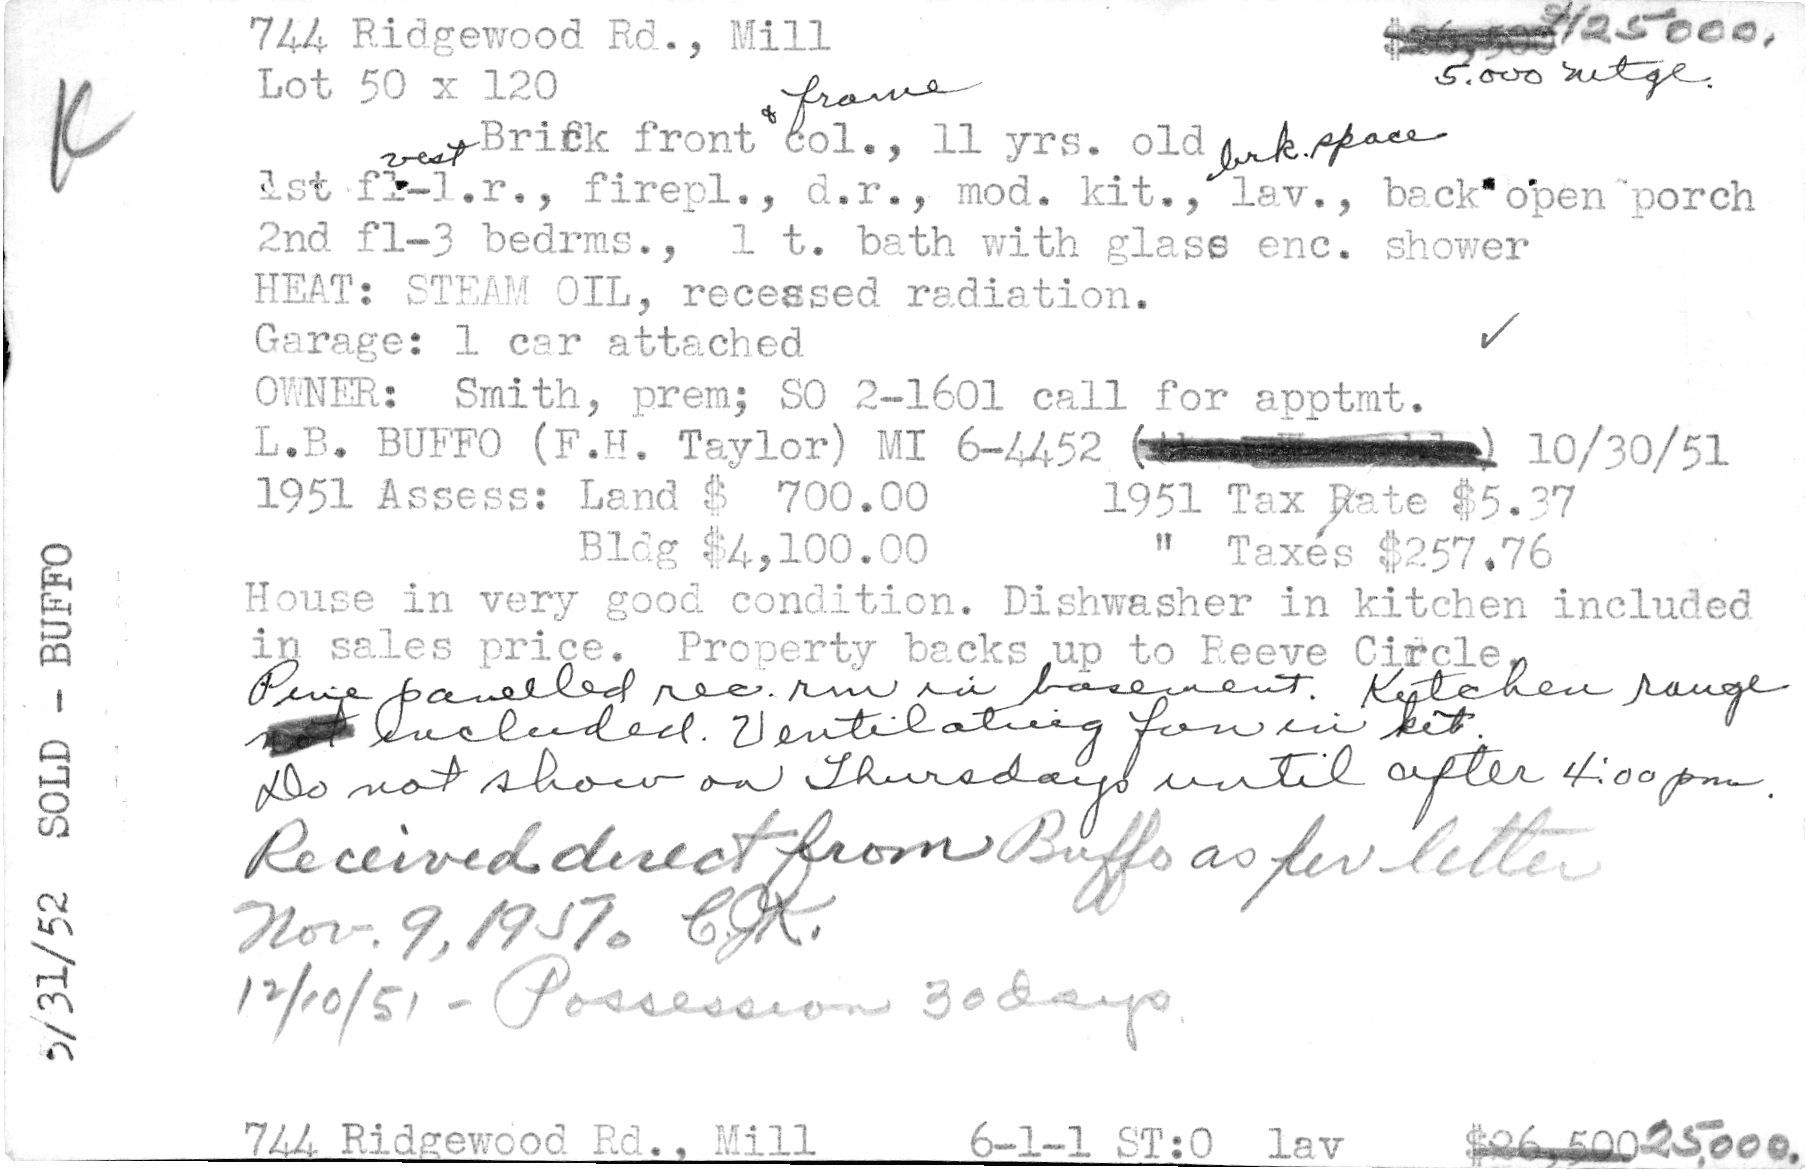 744 Ridgewood Rd., Mill $26,500 25000.
5.000 mtge.
Lot 50 x 120
& frame
Brick front col., 11 yrs. old
vest brk. space
1st fl-l.r., firepl., d.r., mod. kit., lav., back open porch
2nd fl-3 bedrms., 1 t. bath with glass enc. shower
HEAT: STEAM OIL, recessed radiation.
Garage: 1 car attached ✓
OWNER: Smith, prem; SO 2-1601 call for apptmt.
L.B. BUFFO (F.H. Taylor) MI 6-4452 ( ) 10/30/51
1951 Assess: Land $ 700.00 1951 Tax Rate $5.37
Bldg $4,100.00 " Taxes $257.76
House in very good condition. Dishwasher in kitchen included
in sales price. Property backs up to Reeve Circle.
Pine panelled rec. rm in basement. Kitchen range
not included. Ventilating fan in kit.
Do not show on Thursdays until after 4:00 pm.
Received direct from Buffo as per letter
Nov. 9, 1951. C.J.K.
12/10/51 - Possession 30 days.
744 Ridgewood Rd., Mill 6-1-1 ST:O lav $26,500 25,000.
5/31/52 SOLD - BUFFO
K